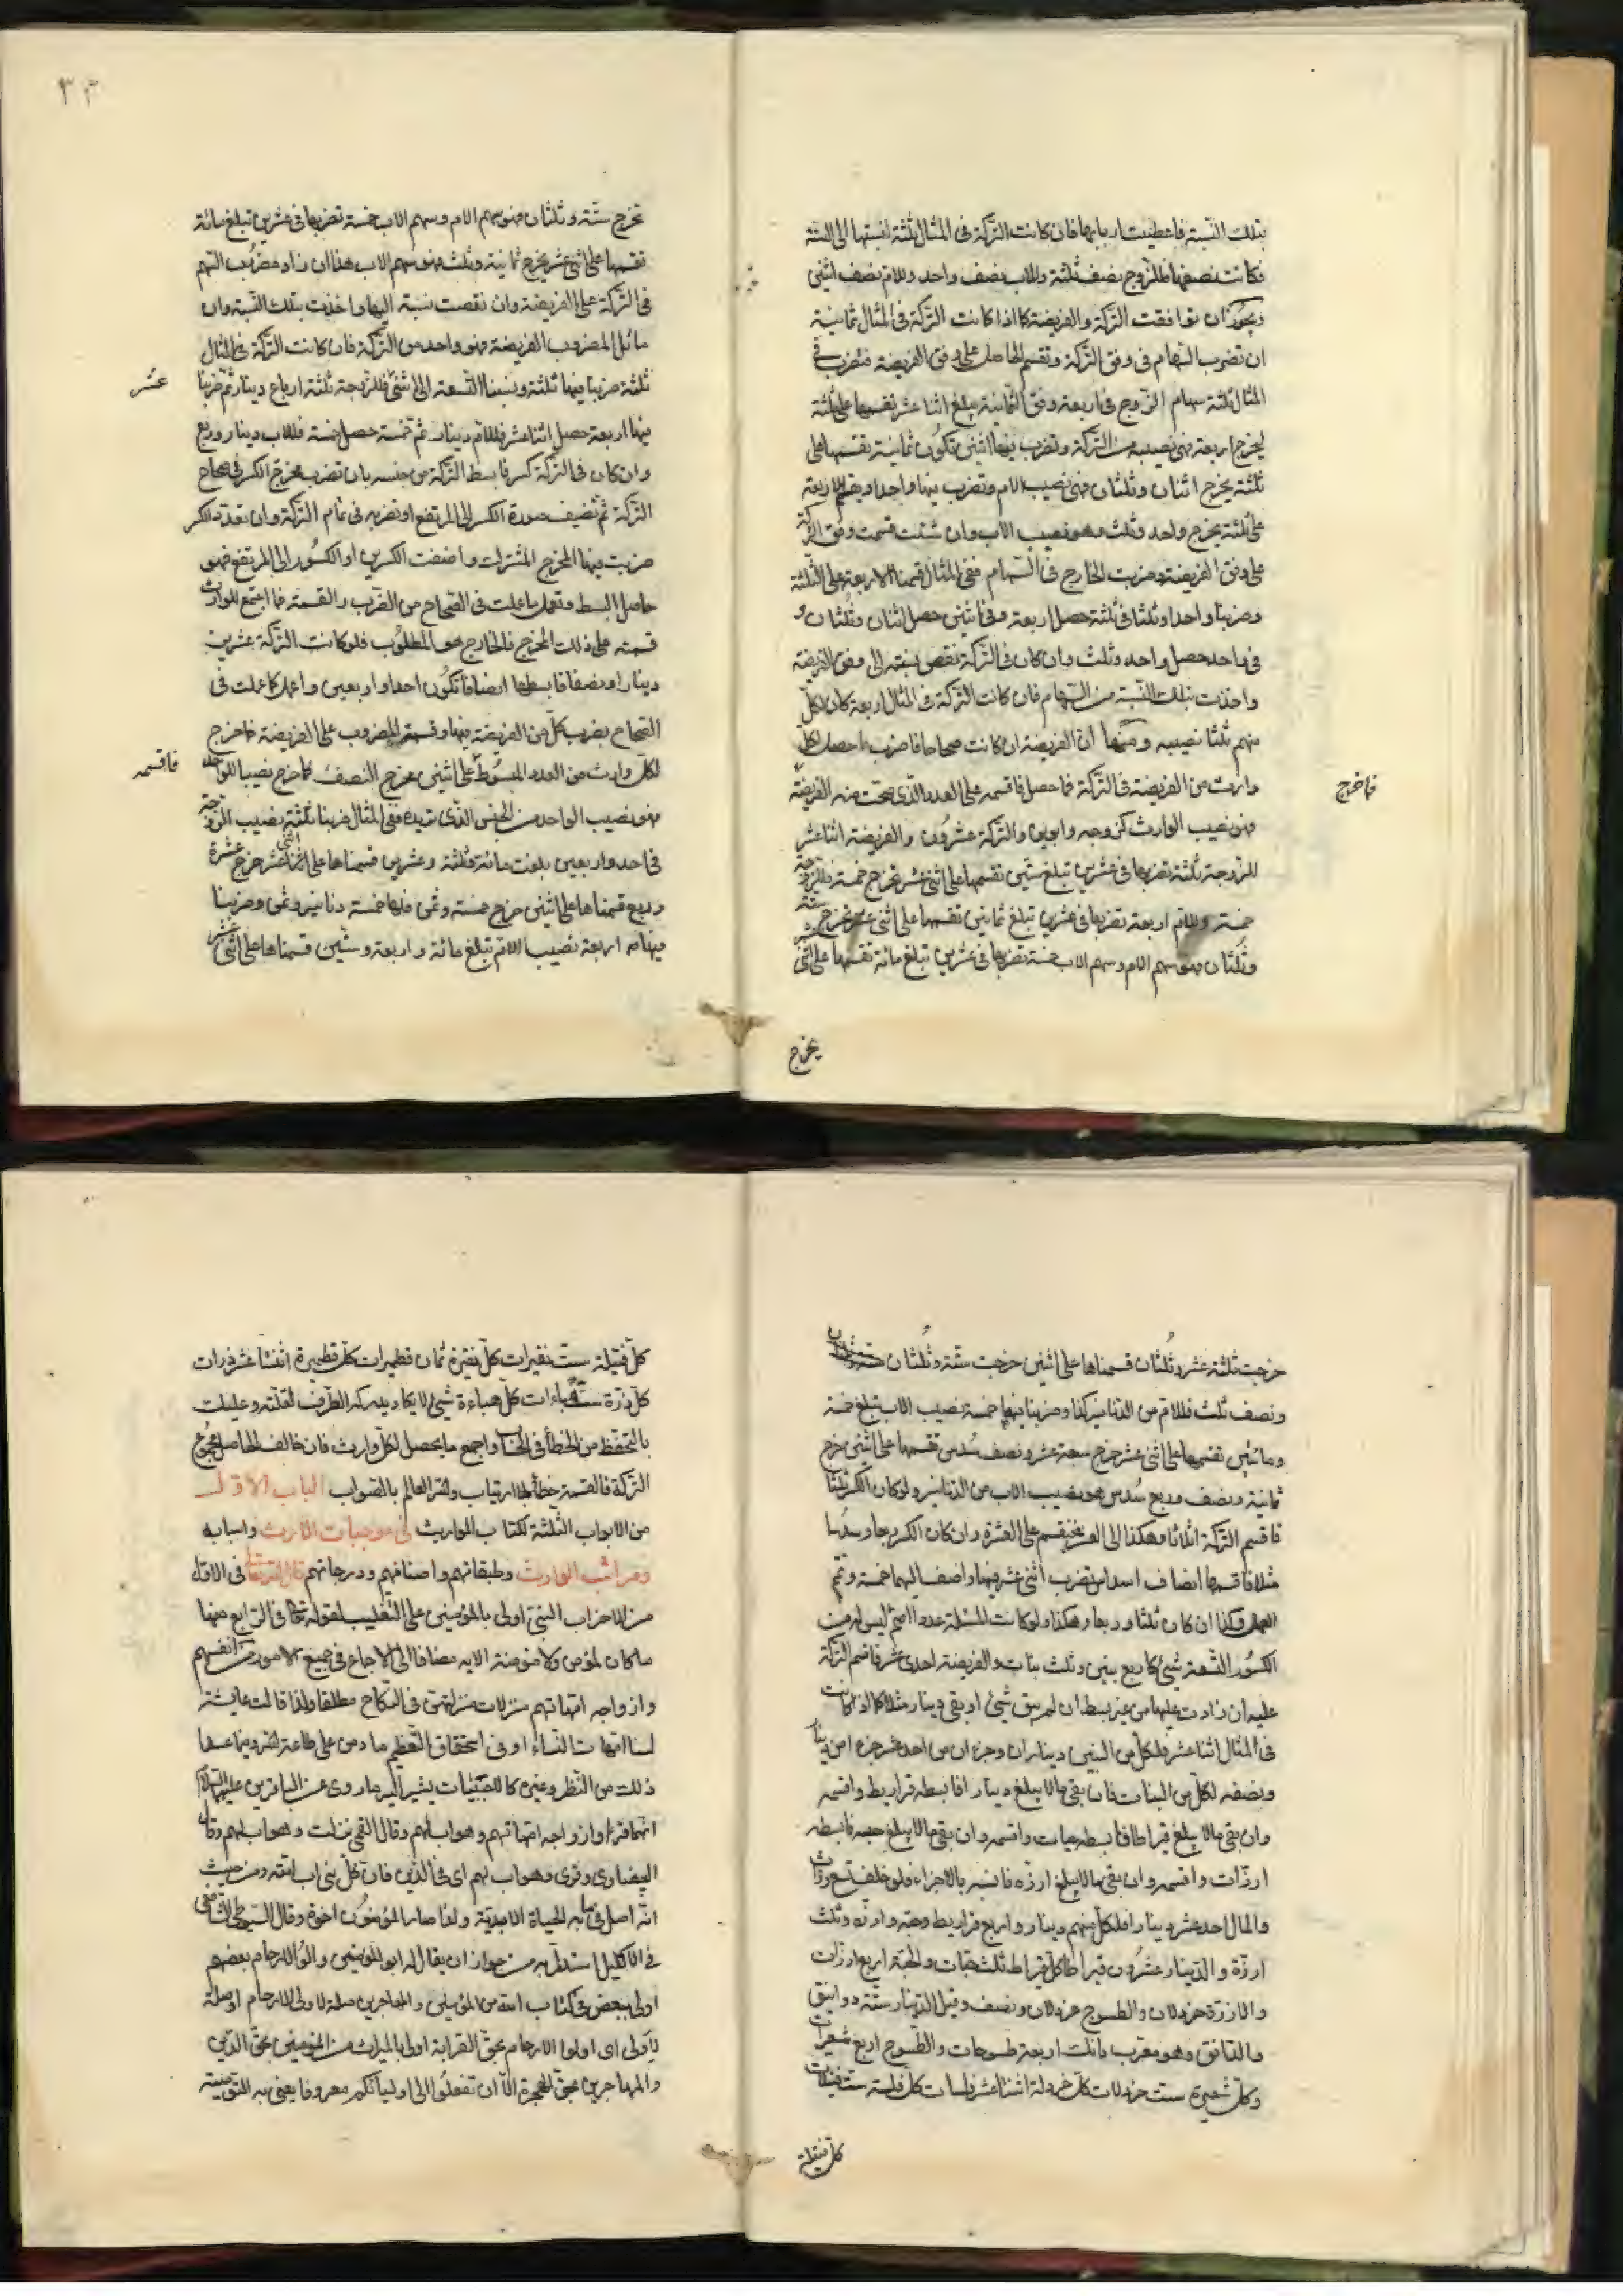 بتلك النسبة فاعطيت اربابها فان كانت التركة فى المثال ثلثة نسبتها الى الستة
فكانت نصفها فللزوج نصف ثلثة وللاب نصف واحد وللام نصف اثنين
ويجوز ان توافقت التركة والفريضة كما اذا كانت التركة فى المثال ثمانية
ان تضرب السهام فى وفق التركة وتقسم الحاصل على وفق الفريضة فتضرب فى
المثال ثلثة سهام الزوج فى اربعة وفق الثمانية يبلغ اثنا عشر نقسمها على ثلثة
يخرج اربعة فهى نصيبه من التركة وتضرب فيها اثنين تكون ثمانية نقسمها على
ثلثة يخرج اثنان وثلثان فهى نصيب الام وتضرب فيها واحدا ويقسم الاربعة
على ثلثة يخرج واحد وثلث وهو نصيب الاب وان شئت قسمت وفق التركة
على وفق الفريضة وضربت الخارج فى السهام ففى المثال قسمنا الاربعة على الثلثة
وضربنا واحدا وثلثا فى ثلثة حصل اربعة وفى اثنين حصل اثنان وثلثان و
فى واحد حصل واحد وثلث وان كان فى التركة نقص نسبته الى وفق الفريضة
واخذت بتلك النسبة من السهام فان كانت التركة فى المثال اربعة كان لكل
منهم ثلثا نصيبه ومنها ان الفريضة ان كانت صحاحا فاضرب ما حصل لكل
وارث من الفريضة فى التركة فما حصل فاقسمه على العدد الذى صحت منه الفريضة
فما خرج
فهو نصيب الوارث كزوجه وابوين والتركة عشرون والفريضة اثنا عشر
للزوجة ثلثة تضربها فى عشرين تبلغ ستين نقسمها على اثنى عشر تخرج خمسة فللزوجة
خمسة وللام اربعة تضربها فى عشرين تبلغ ثمانين نقسمها على اثنى عشر تخرج ستة
وثلثان فهو سهم الام وسهم الاب خمسة تضربها فى عشرين تبلغ مائة نقسمها على اثنى عشر
يخرج
٣٣
تخرج ستة وثلثان فهو سهم الام وسهم الاب خمسة تضربها فى عشرين تبلغ مائة
نقسمها على اثنى عشر يخرج ثمانية وثلث فهو سهم الاب هذا ان زاد مضروب السهم
فى التركة على الفريضة وان نقصت نسبته اليها واخذت بتلك النسبة وان
ماثل المضروب الفريضة فهو واحد من التركة فان كانت التركة فى المثال
ثلثة ضربنا فيها ثلثة ونسبنا التسعة الى اثنى فللزوجة ثلثة ارباع دينار ثم ضربنا
عشر
فيها اربعة حصل اثنا عشر فللام دينار ثم خمسة حصل خمسة فللاب دينار وربع
وان كان فى التركة كسر فابسط التركة من جنسه بان تضرب مخرج الكسر فى صحاح
التركة ثم تضيف صورة الكسر الى المرتفع او تضربه فى تمام التركة وان تعدد الكسر
ضربت فيها المخرج المشترك واضفت الكسرين او الكسور الى المرتفع فهو
حاصل البسط وتعمل ما عملت فى الصحاح من الضرب والقسمة فما اجتمع للوارث
قسمته على ذلك المخرج فالخارج هو المطلوب فلو كانت التركة عشرين
دينارا ونصفا فابسطها انصافا تكون احدا واربعين واعمل كما عملت فى
الصحاح بضرب كل من الفريضة فيها وقسمة المضروب على الفريضة فما خرج
لكل وارث من العدد المبسوط على اثنين مخرج النصف فما خرج نصيبا للواحد
فاقسمه
فهو نصيب الواحد من الجنس الذى تريده ففى المثال ضربنا ثلثة نصيب الزوجة
فى احد واربعين بلغت مائة وثلثة وعشرين قسمناها على اثنى عشر خرج عشرة
وربع قسمناها على اثنين خرج خمسة وثمن فلها خمسة دنانير وثمن وضربنا
فيها اربعة نصيب الام تبلغ مائة واربعة وستين قسمناها على اثنى عشر
خرجت ثلثة عشر وثلثان قسمناها على اثنين خرجت ستة وثلثان
ونصف ثلث فللام من الدنانير كذا وضربنا فيها خمسة نصيب الاب تبلغ خمسة
ومائتين نقسمها على اثنى عشر خرج سبعة عشر ونصف سدس نقسمها على اثنين خرج
ثمانية ونصف وربع سدس هو نصيب الاب من الدنانير ولو كان الكسر ثلثا
فاقسم التركة اثلاثا وهكذا الى العشر فتقسم على العشرة وان كان الكسر ربعا وسدسا
مثلا فاقسمها انصاف اسداس تضرب اثنى عشر فيها واضف اليها خمسة وتمم
العمل وكذا ان كان ثلثا وربعا وهكذا ولو كانت المسئلة عددا اصم ليس له من
الكسور التسعة شىء كاربع بنين وثلث بنات والفريضة احدى عشر فاقسم التركة
عليه ان زادت عليها من غير بسط ان لم يبق شىء او بقى دينار مثلا كما اذا كانت
فى المثال اثنا عشر فلكل من البنين ديناران وجزءان من احد عشر جزءا من دينار
ونصفه لكل من البنات فان بقى مالا يبلغ دينارا فابسطه قراريط واقسمه
وان بقى مالا يبلغ قيراطا فابسطه حبات واقسمه وان بقى مالا يبلغ حبة فابسطه
ارزات واقسمه وان بقى مالا يبلغ ارزة فانسبه بالاجزاء فلو خلف تسع وراث
والمال احد عشر دينارا فلكل منهم دينار واربع قراريط وحبة وارزة وثلث
ارزة والدينار عشرون قيراطا كل قيراط ثلث حبات والحبة اربع ارزات
والارزة خردلان والطسوج خردلان ونصف وقيل الدينار ستة دوانيق
والدانق وهو معرب دانك اربعة طسوجات والطسوج اربع شعيرات
وكل شعيرة ست خردلات كل خردلة اثنا عشر فلسات كل فلسة ست فتيلات
كل فتيلة
كل فتيلة ست نقيرات كل نقيرة ثمان قطميرات كل قطميرة اثنتا عشر ذرات
كل ذرة ست هباءات كل هباءة شىء لا يكاد يدركه الطرف لقلته وعليك
بالتحفظ من الخطأ فى الحساب واجمع ما يحصل لكل وارث فان خالف الحاصل مجموع
التركة فالقسمة خطأ بلا ارتياب والله العالم بالصواب الباب الاول
من الابواب الثلثة لكتاب المواريث فى موجبات الارث واسبابه
ومراتب الوارث وطبقاتهم واصنافهم ودرجاتهم قال الله تعالى فى الاول
من الاحزاب النبى اولى بالمؤمنين على التغليب لقوله تعالى فى الرابع منها
ما كان لمؤمن ولا مؤمنة الايه مضافا الى الاجماع فى جميع الامور من انفسهم
وازواجه امهاتهم منزلات منزلتهن فى النكاح مطلقا ولذا قالت عايشة
لسنا امهات النساء او فى استحقاق التعظيم ما دمن على طاعة الله وفيما عدا
ذلك من النظر وغيره كالاجنبيات يشير اليه ما روى عن الباقرين عليهما السلام
انهما قرءا وازواجه امهاتهم وهو اب لهم وقال القمى نزلت وهو اب لهم وقال
البيضاوى وقرى وهو اب لهم اى فى الدين فان كل نبى اب امته ومن حيث
انه اصل فيما به الحياة الابدية ولذا صار المؤمنون اخوة وقال السيوطى الشافعى
فى الاكليل استدل به من جواز ان يقال له ابو المؤمنين واولوا الارحام بعضهم
اولى ببعض فى كتاب الله من المؤمنين والمهاجرين صلة لاولى الارحام او صلة
لاولى اى اولوا الارحام بحق القرابة اولى بالميراث من المؤمنين بحق الدين
والمهاجرين بحق الهجرة الا ان تفعلوا الى اوليائكم معروفا يعنى به التوصية